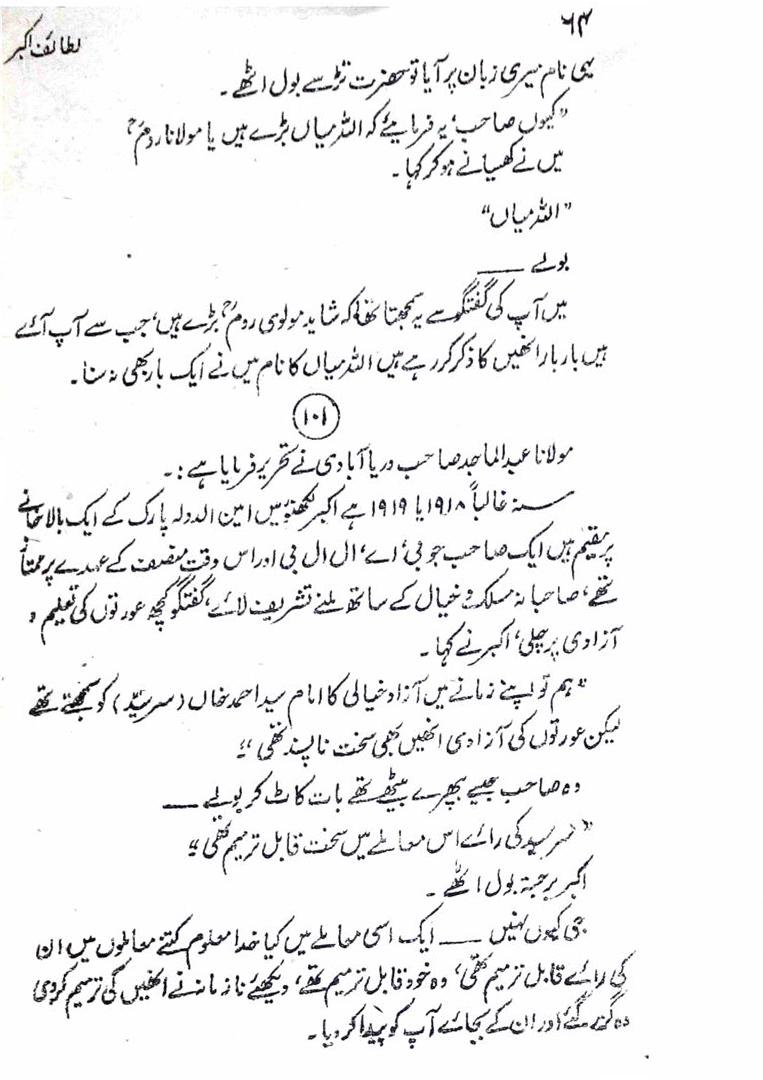 ۶۴
لطائف اکبر
یہی نام میری زبان پر آیا تو حضرت تڑسے بول اٹھے۔
”کیوں صاحب، یہ فرمایئے کہ اللہ میاں بڑے ہیں یا مولانا رومؒ
میں نے کھسیانے ہو کر کہا۔
”اللہ میاں“
بولے ــــ
میں آپ کی گفتگو سے یہ سمجھتا تھا کہ شاید مولوی رومؒ بڑے ہیں، جب سے آپ آئے
ہیں بار بار انھیں کا ذکر کر رہے ہیں اللہ میاں کا نام میں نے ایک بار بھی نہ سنا۔
۱۰۱
مولانا عبدالماجد صاحب دریاآبادی نے تحریر فرمایا ہے:۔
سنہ غالباً ۱۹۱۸ یا ۱۹۱۹ ہے اکبر لکھنؤ میں امین الدولہ پارک کے ایک بالاخانے
پر مقیم ہیں ایک صاحب جو بی، اے، ال ال بی اور اس وقت منصف کے عہدے پر ممتاز
تھے، صاحبانہ مسلک و خیال کے ساتھ ملنے تشریف لائے، گفتگو کچھ عورتوں کی تعلیم و
آزادی پر چلی، اکبر نے کہا۔
”ہم تو اپنے زمانے میں آزاد خیالی کا امام سید احمد خاں (سر سیّد) کو سمجھتے تھے
لیکن عورتوں کی آزادی انھیں بھی سخت ناپسند تھی“
وہ صاحب جیسے بپھرے بیٹھے تھے بات کاٹ کر بولے ــــ
”سر سید کی رائے اس معاملے میں سخت قابل ترمیم تھی“
اکبر برجستہ بول اٹھے۔
جی کیوں نہیں ــــ ایک اسی معاملے میں کیا خدا معلوم کتنے معاملوں میں ان
کی رائے قابل ترمیم تھی، وہ خود قابل ترمیم تھے، دیکھئے نا زمانہ نے انھیں کی ترمیم کردی
وہ گزر گئے اور ان کے بجائے آپ کو پیدا کر دیا۔